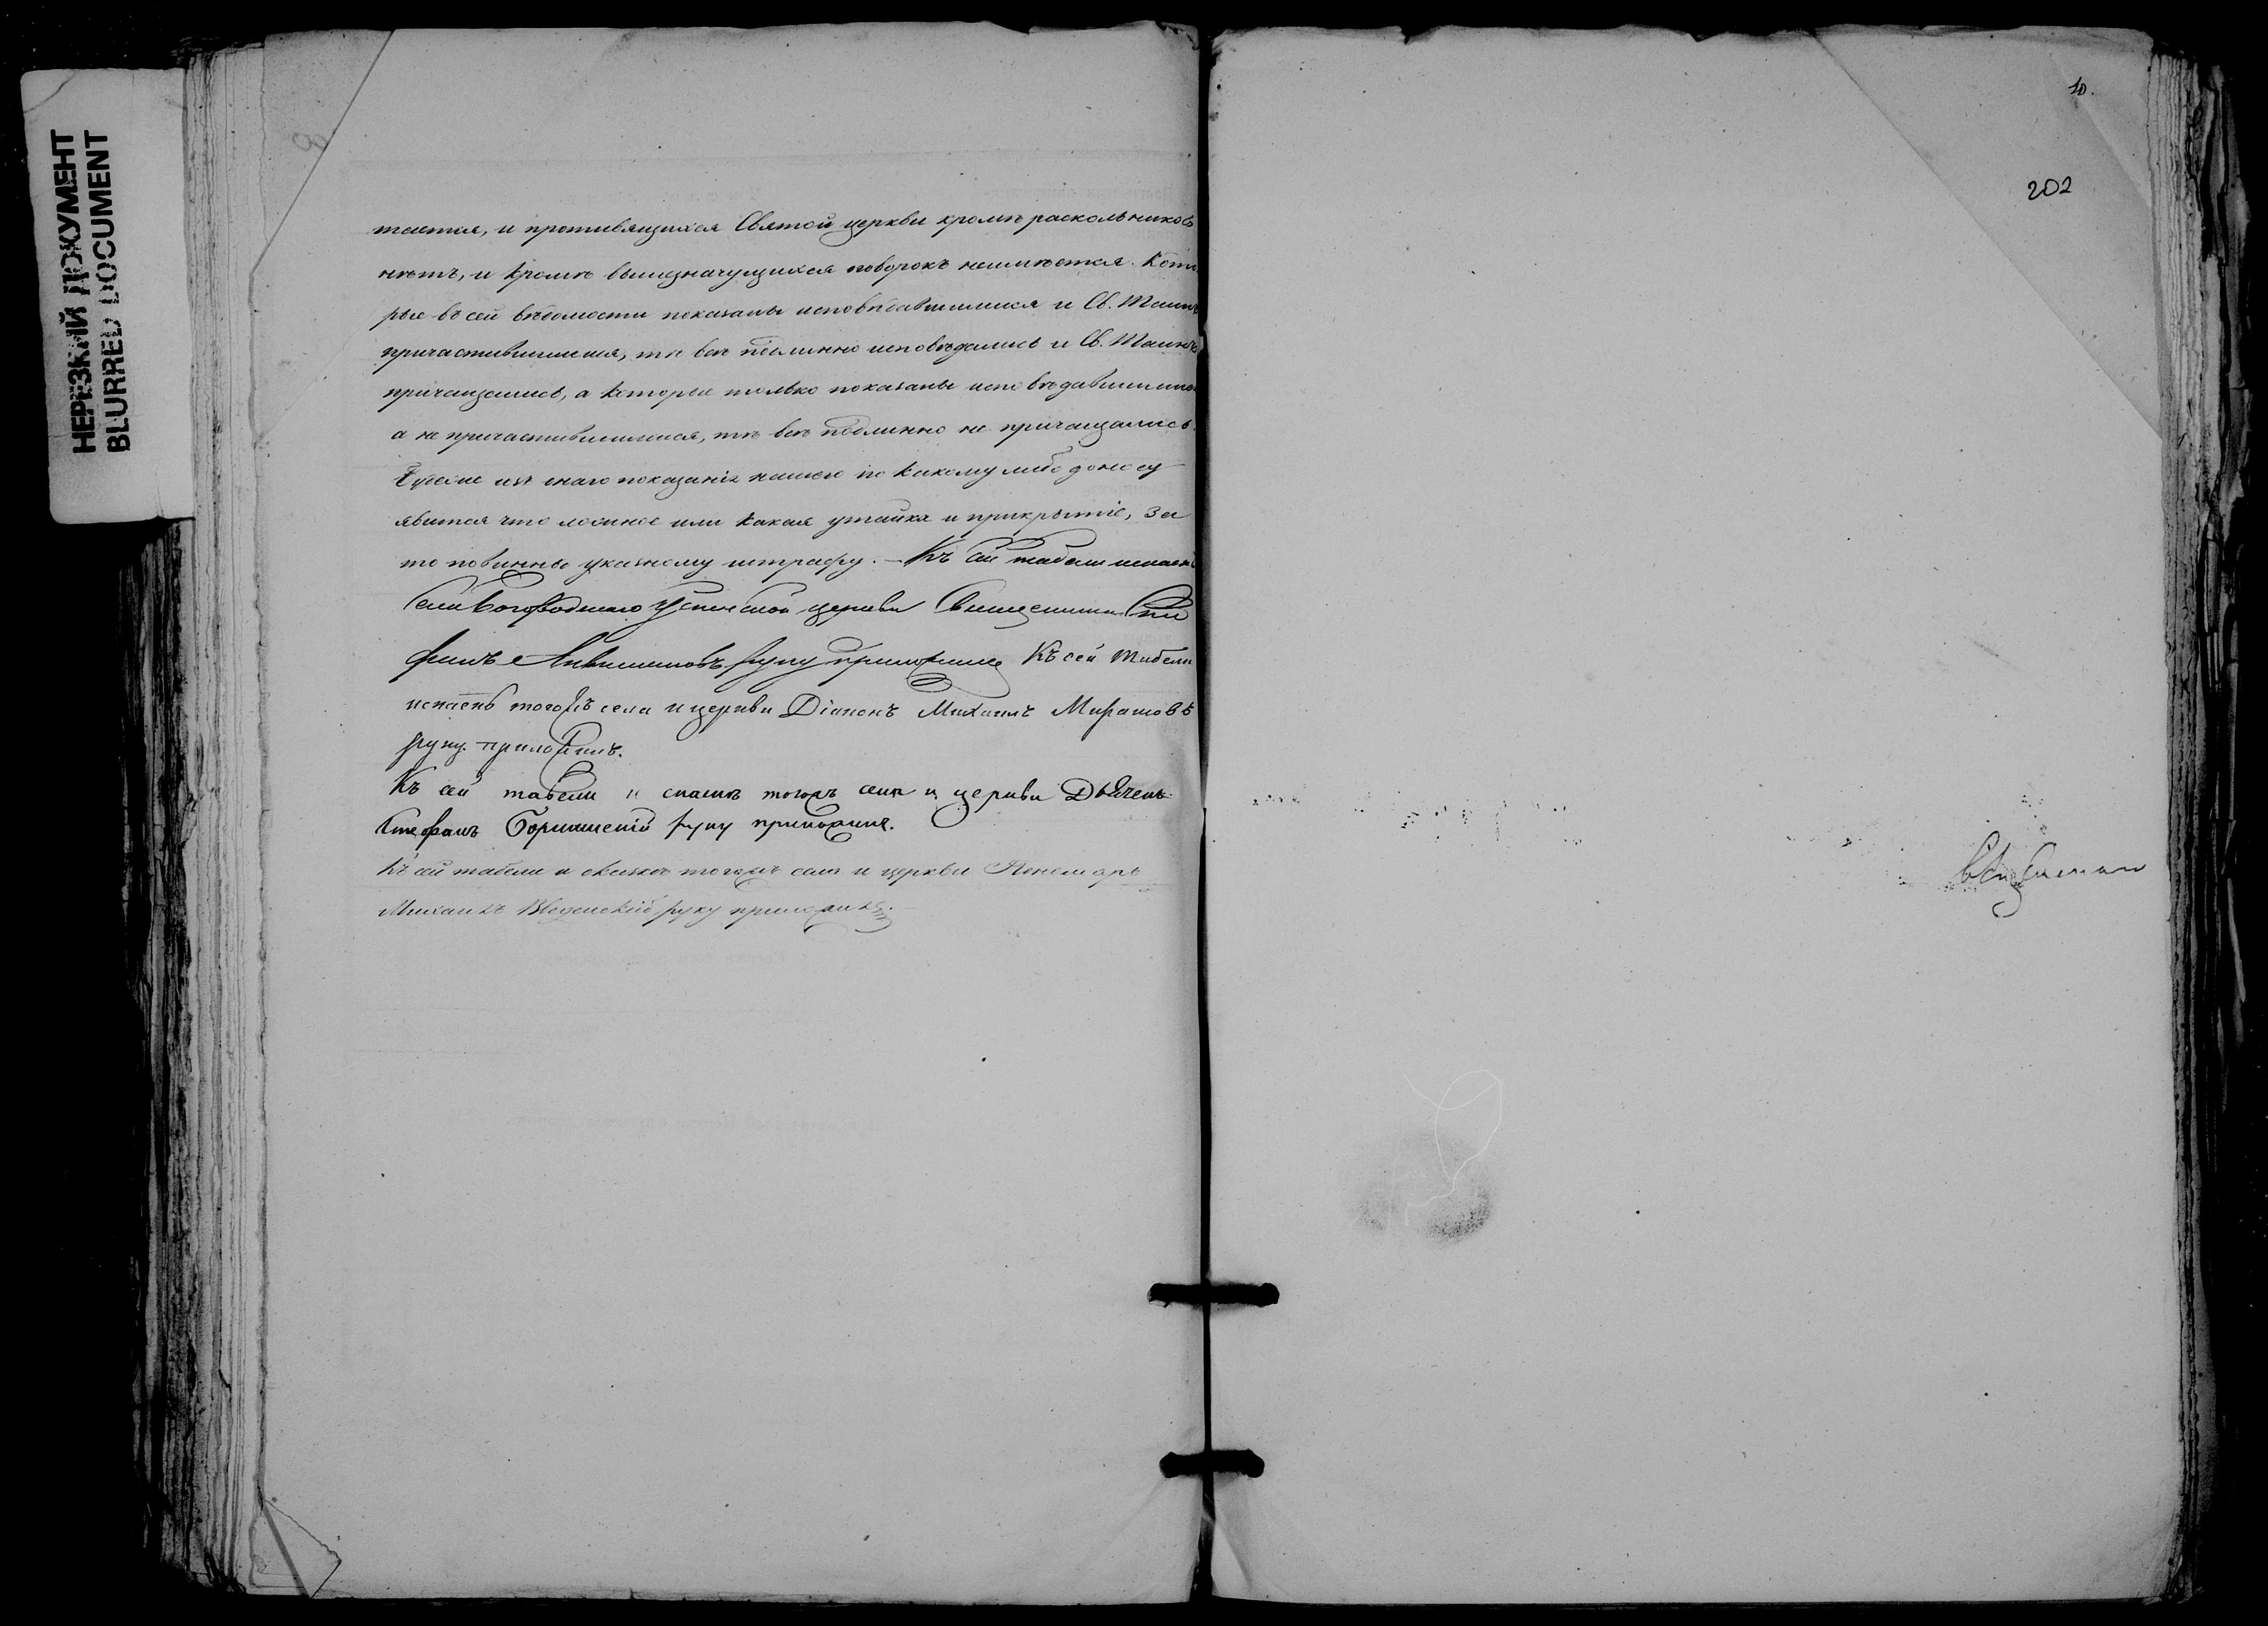 НЕРЕЗКИЙ ДОКУМЕНТ
BLURRED DOCUMENT
тается, и противящихся Святой церкви кромѣ раскольниковъ
нѣтъ, и кромѣ вышезначущихся неимѣется. Кото
рые въ сей вѣдомости показаны исповѣдавшимися и Св. Таинъ
причастившимися, тѣ всѣ подлинно исповѣдались и Св. Таинъ
причащались, а которыя только показаны исповѣдавшимися
а не причастившимися, тѣ всѣ подлинно не причащались.
Будеже изъ онаго показанія нашего по какому либо доносу
явится что ложное или какая утайка и прикрытіе, За
то повинны указному штрафу. — Къ сей табели
села Богородскаго Успенской церкви Священникъ
руку приложилъ Къ сей табели
тогожъ села и церкви Діаконъ Михаилъ
руку приложилъ.
Къ сей табели и тогожъ села и церкви Дьячекъ
Стефанъ руку приложилъ.
Къ сей табели и тогожъ села и церкви Пономарь
Михаилъ Введенскій руку приложилъ.
10.
202